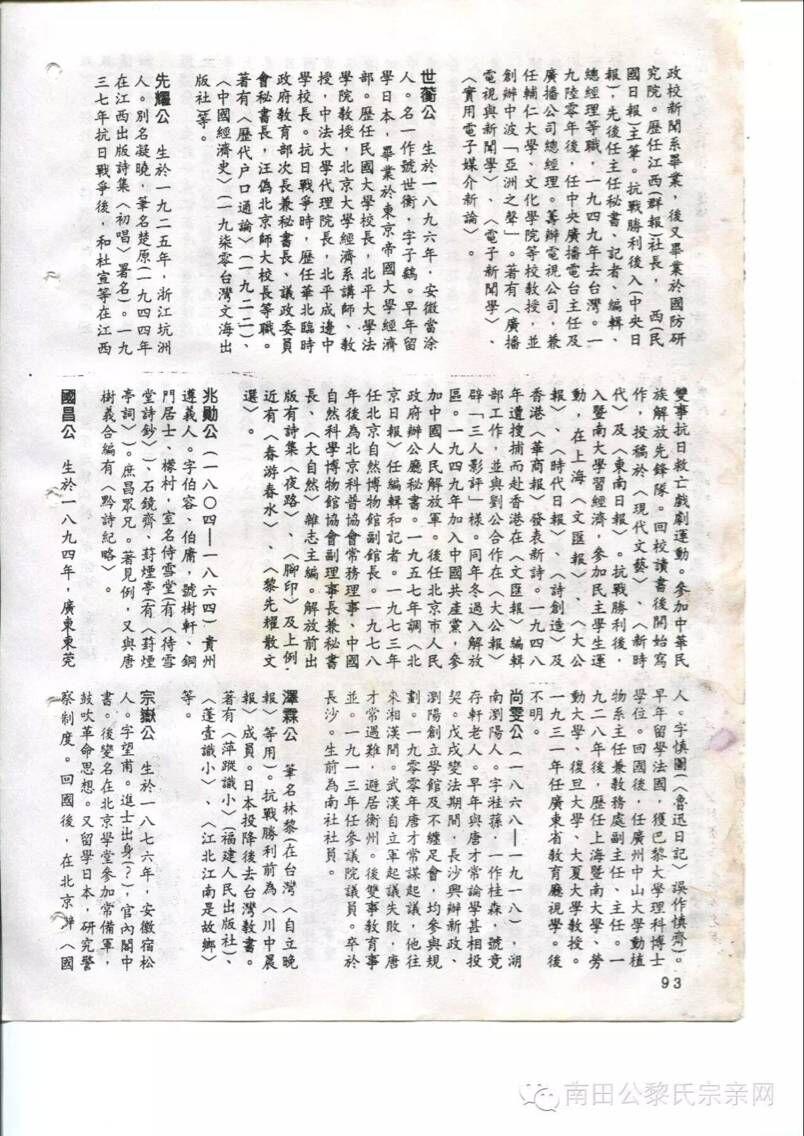 政校新聞系畢業，後又畢業於國防研
究院。歷任江西〈群報〉社長，　西〈民
國日報〉主筆。抗戰勝利後入〈中央日
報〉，先後任主任秘書、記者、編輯、
總經理等職，一九四九年去台灣。一
九陸零年後，任中央廣播電台主任及
廣播公司總經理。籌辦電視公司，兼
任輔仁大學、文化學院等校教授，並
創辦中波「亞洲之聲」。著有〈廣播
電視與新聞學〉、〈電子新聞學〉、
〈實用電子媒介新論〉。
世蘅公　生於一八九六年，安徽當塗
人。名一作號世衡，字子鶴。早年留
學日本，畢業於東京帝國大學經濟
部。歷任民國大學校長，北平大學法
學院教授，北京大學經濟系講師、教
授，中法大學代理院長，北平成達中
學校長。抗日戰爭時，歷任華北臨時
政府教育部次長兼秘書長、議政委員
會秘書長，汪偽北京師大校長等職。
著有〈歷代户口通論〉（一九二二）、
〈中國經濟史〉（一九柒零台灣文海出
版社）等。
先耀公　生於一九二五年，浙江杭洲
人。別名凝曉，筆名楚原（一九四四年
在江西出版詩集〈初唱〉署名）。一九
三七年抗日戰爭後，和杜宣等在江西
雙事抗日救亡戲劇運動。參加中華民
族解放先鋒隊。回校讀書後開始寫
作，投稿於〈現代文藝〉、〈新時
代〉及〈東南日報〉。抗戰勝利後，
入暨南大學習經濟，參加民主學生運
動，在上海〈文匯報〉、〈大公
報〉、〈時代日報〉、〈詩創造〉及
香港〈華商報〉發表新詩。一九四八
年遭搜捕而赴香港在〈文匯報〉編輯
部工作，並與劉公合作在〈大公報〉
辟「三人影評」樣。同年冬過入解放
區。一九四九年加入中國共產黨，參
加中國人民解放軍。後任北京市人民
政府辦公廳秘書。一九五七年調〈北
京日報〉任編輯和記者。一九七三年
任北京自然博物館副館長。一九七八
年後為北京科普協會常務理事、中國
自然科學博物館協會副理事長兼秘書
長、〈大自然〉雜志主編。解放前出
版有詩集〈夜路〉、〈腳印〉及上例
近有〈春游春水〉、〈黎先耀散文
選〉。
兆勛公（一八〇四—一八六四）貴州
遵義人。字伯容、伯庸，號樹軒、銅
門居士、檬村，室名侍雪堂（有〈待雪
堂詩鈔〉）、石鏡齋、葑煙亭（有〈葑煙
亭詞〉）。庶昌眾兄。著見例，又與唐
樹義合編有〈黔詩紀略〉。
國昌公　生於一八九四年，廣東東莞
人。字慎圖（〈魯迅日記〉誤作慎齊）。
早年留學法國，獲巴黎大學理科博士
學位。回國後，任廣州中山大學動植
物系主任兼教務處副主任、主任。一
九二八年後，歷任上海暨南大學、勞
動大學、復旦大學、大夏大學教授。
一九三一年任廣東省教育廳視學。後
不明。
尚雯公（一八六八—一九一八），湖
南瀏陽人。字桂蓀，一作桂森，號竟
存軒老人。早年與唐才常論學甚相投
契。戊戌變法期間，長沙興辦新政、
瀏陽創立學館及不纏足會，均參與規
劃。一九零零年唐才常謀起議，他往
來湘漢間。武漢自立軍起議失敗，唐
才常遇難，避居衡州。後雙事教育事
並。一九一三年任參議院議員。卒於
長沙。生前為南社社員。
澤霖公　筆名林黎（在台灣〈自立晚
報〉等用）。抗戰勝利前為〈川中晨
報〉成員。日本投降後去台灣教書。
著有〈萍蹤識小〉（福建人民出版社）、
〈蓬壺識小〉、〈江北江南是故鄉〉
等。
宗嶽公　生於一八七六年，安徽宿松
人。字望甫。進士出身（？），官內閣中
書。後變名在北京學堂參加常備軍，
鼓吹革命思想。又留學日本，研究警
察制度。回國後，在北京辦〈國
93
南田公黎氏宗亲网